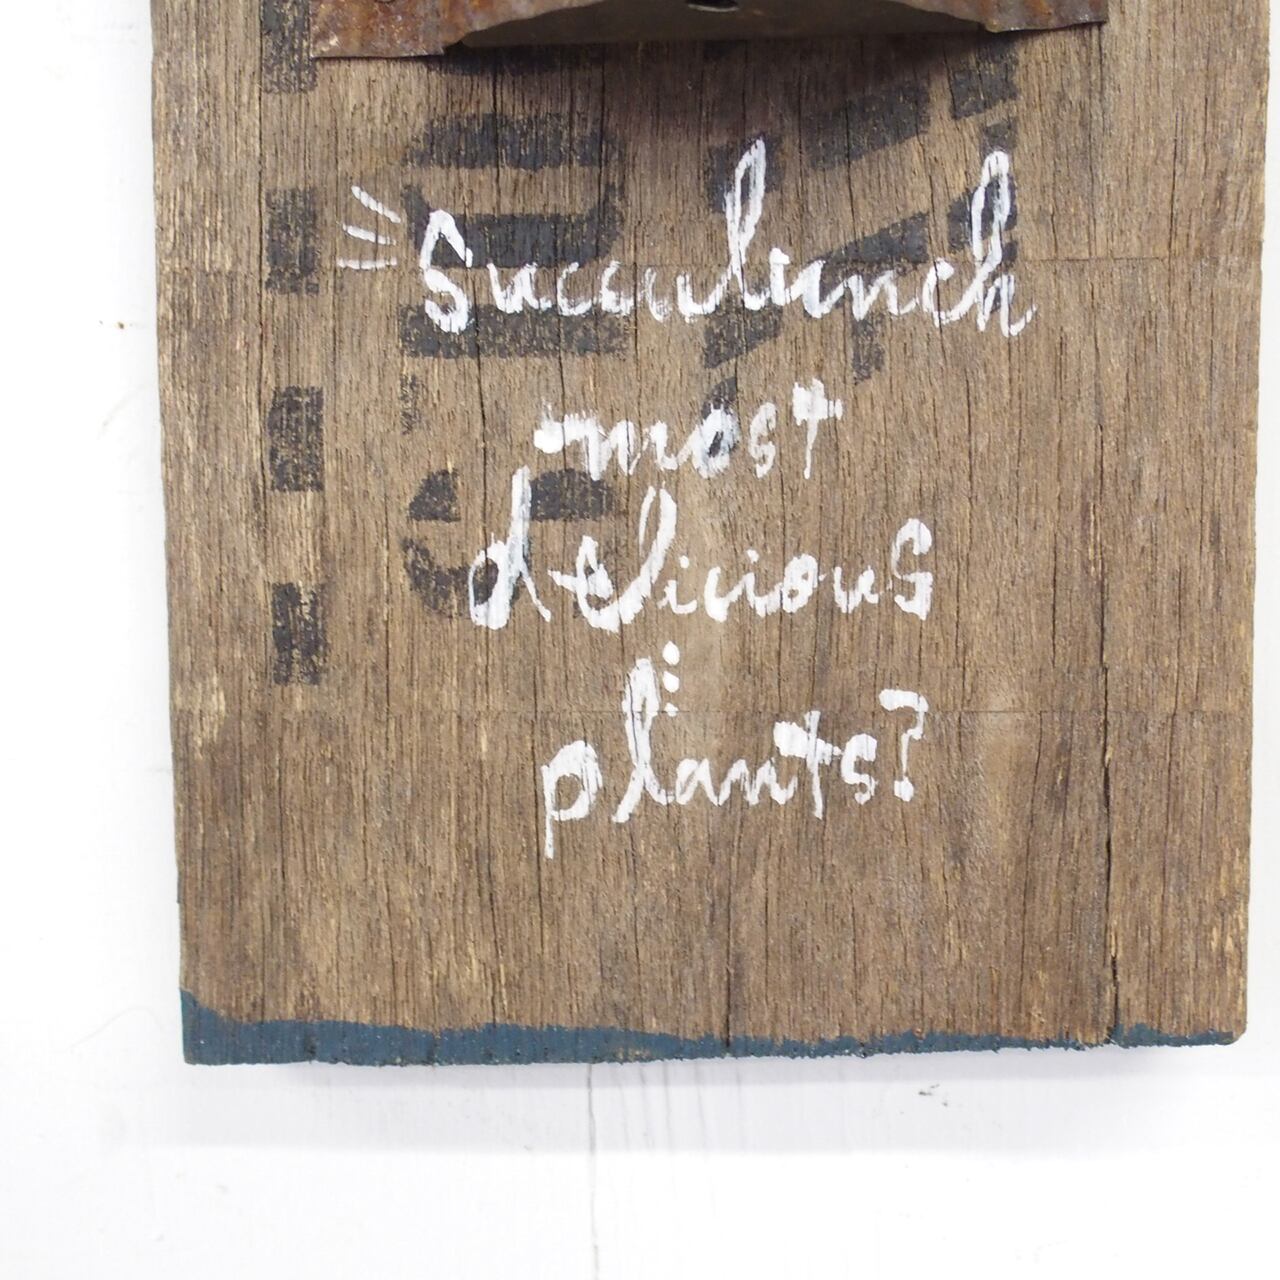 Succulunch
most
delicious
plants?